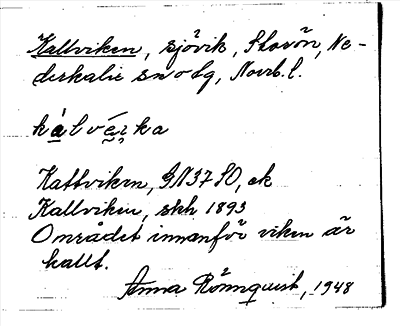 Kallviken, sjövik, Storön, Ne-
derkalix sn o tg, Norrb. l.
kálvè̤ka
Kattviken, GN37SO, ek
Kallviken, skh 1893
Området innanför viken är
kallt.
Anna Rönnquist, 1948